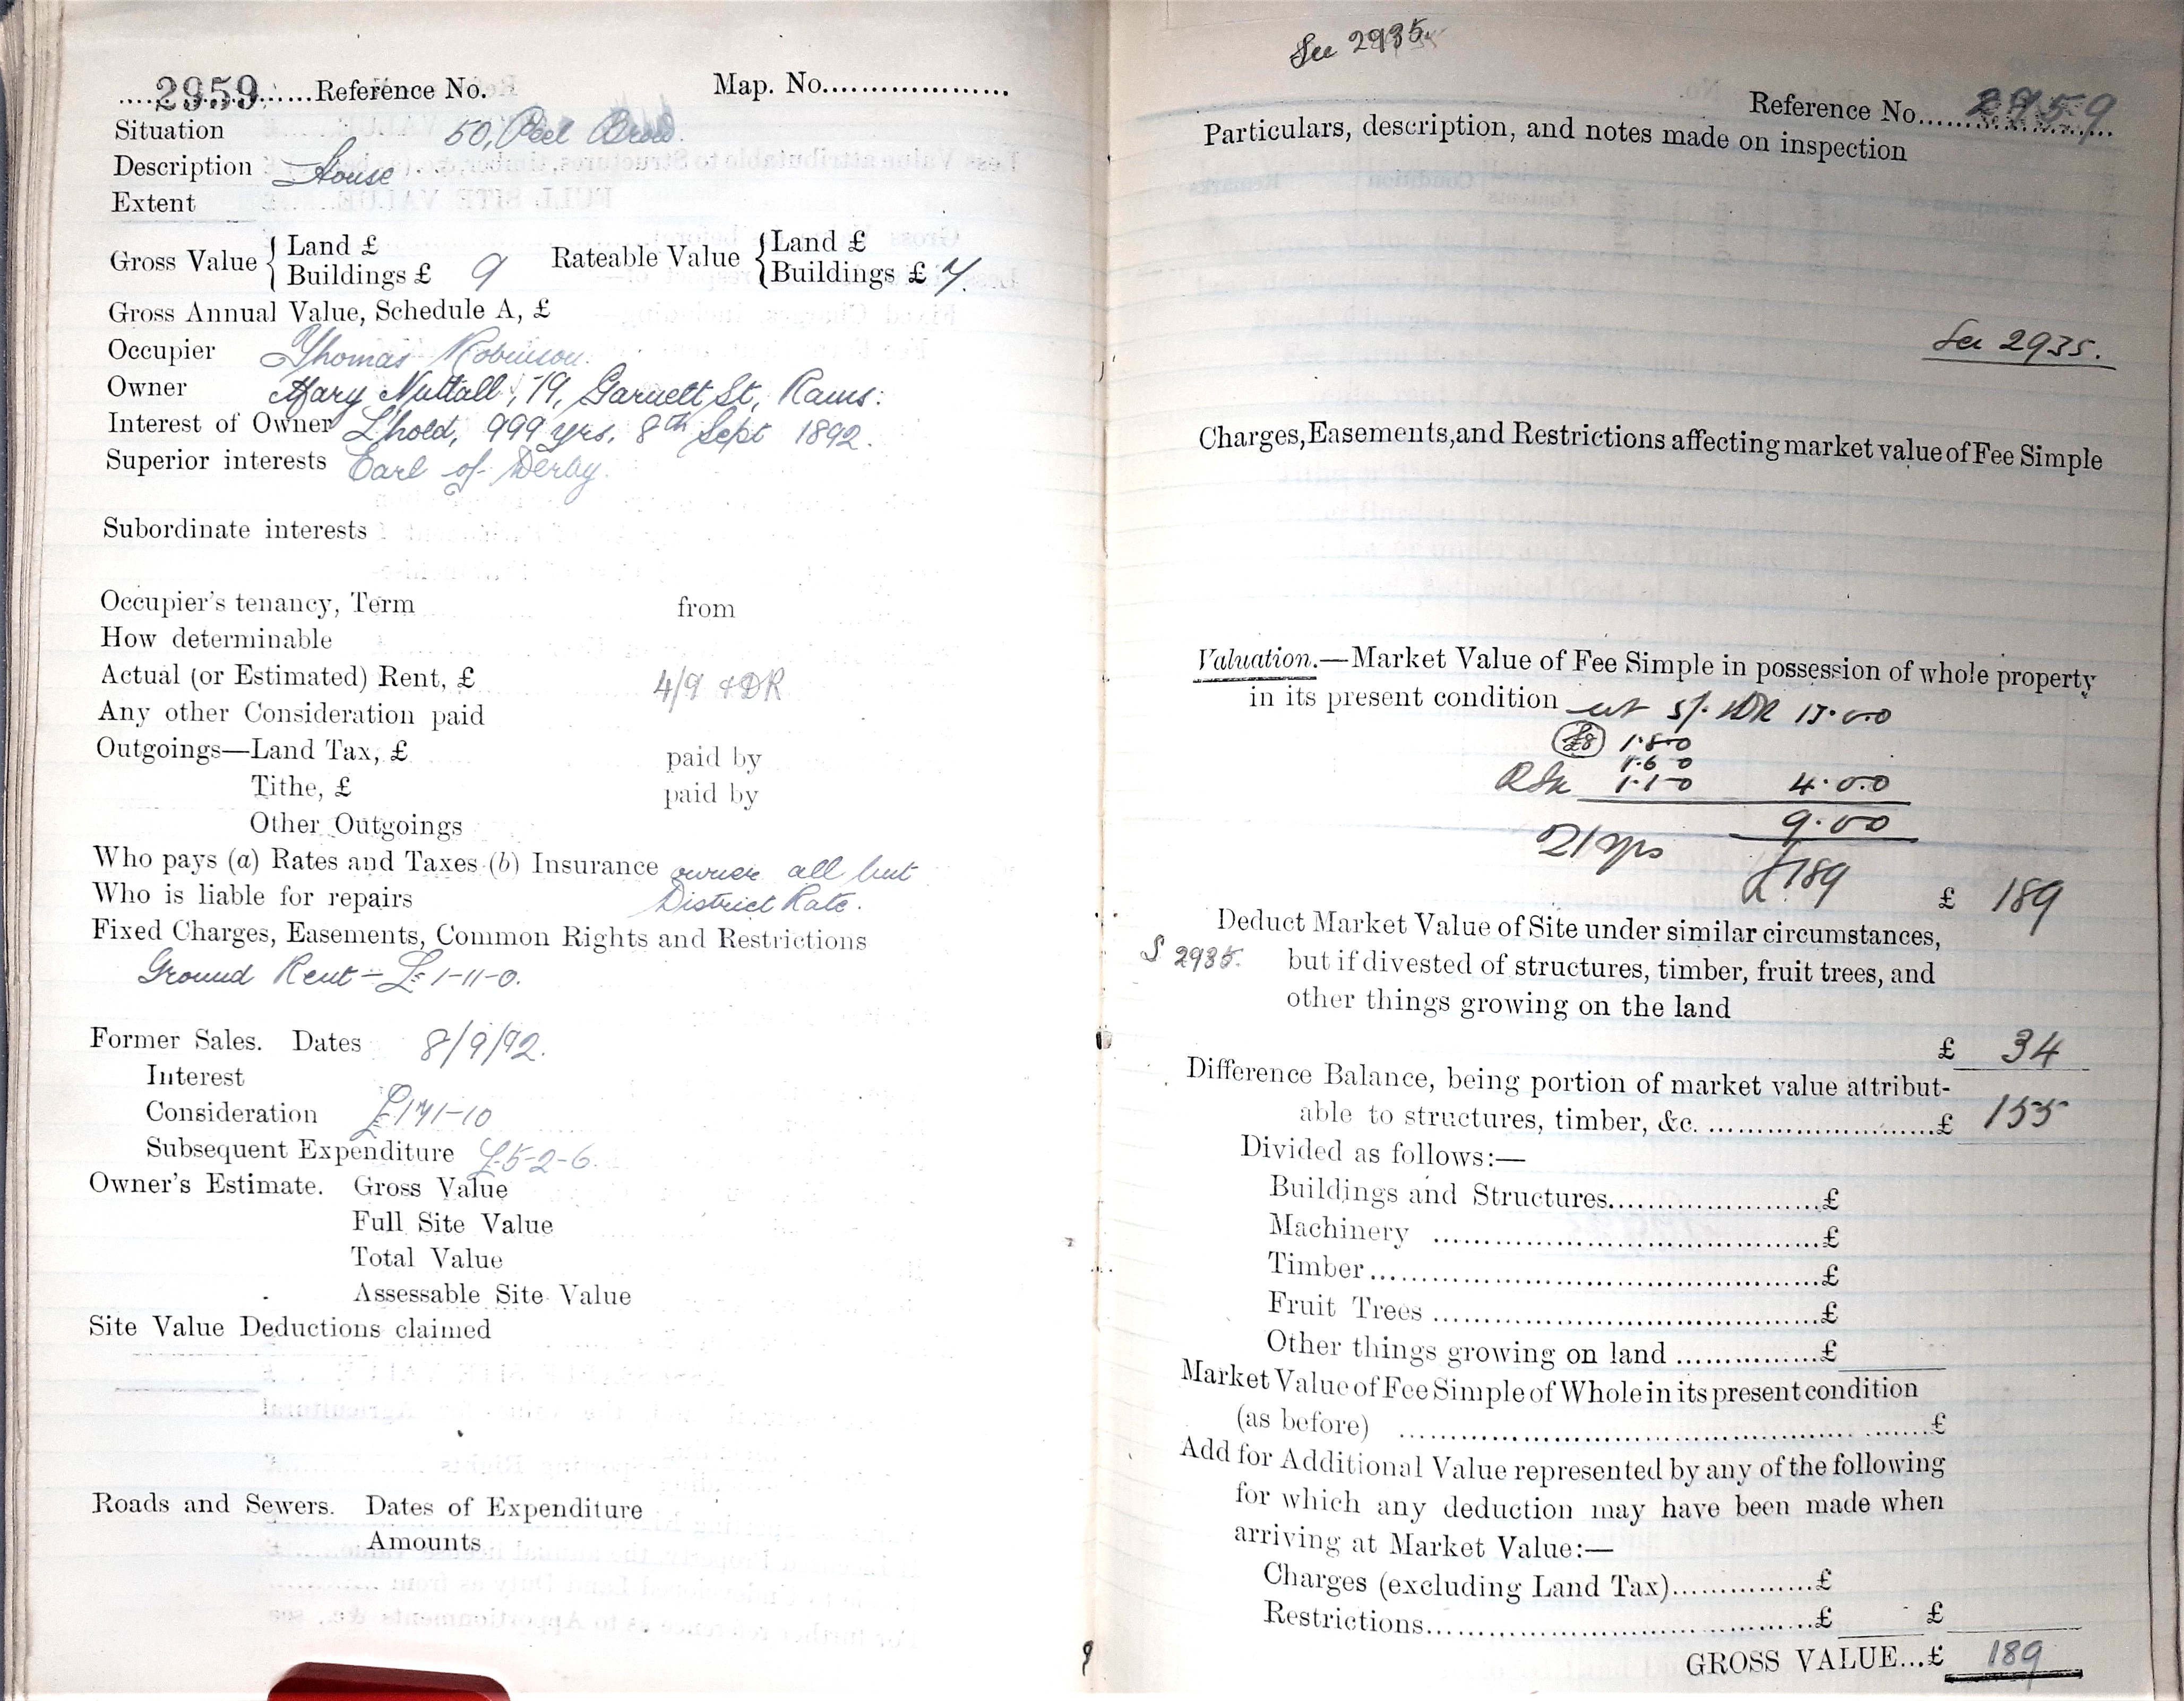 2959 Reference No. Map. No.
Situation 50, Peel Brow.
Description House
Extent
Gross Value { Land £ Rateable Value { Land £
Buildings £ 9 Buildings £ 7.
Gross Annual Value, Schedule A, £
Occupier Thomas Robinson.
Owner Mary Nuttall, 19, Garnett St, Rams:
Interest of Owner L'hold, 999 yrs. 8th Sept 1892.
Superior interests Earl of Derby.
Subordinate interests
Occupier's tenancy, Term from
How determinable
Actual (or Estimated) Rent, £ 4/9 + DR
Any other Consideration paid
Outgoings—Land Tax, £ paid by
Tithe, £ paid by
Other Outgoings
Who pays (a) Rates and Taxes (b) Insurance owner all but
Who is liable for repairs District Rate.
Fixed Charges, Easements, Common Rights and Restrictions
Ground Rent - £1-11-0.
Former Sales. Dates 8/9/92.
Interest
Consideration £171-10
Subsequent Expenditure £5-2-6.
Owner's Estimate. Gross Value
Full Site Value
Total Value
Assessable Site Value
Site Value Deductions claimed
Roads and Sewers. Dates of Expenditure
Amounts
See 2935.
Reference No. 2959
Particulars, description, and notes made on inspection
See 2935.
Charges, Easements, and Restrictions affecting market value of Fee Simple
Valuation.—Market Value of Fee Simple in possession of whole property
in its present condition 5/- + DR 13.0.0
£8 1.8.0
1.6.0
1.1.0 4.0.0
9.0.0
21 yrs
£189 £ 189
Deduct Market Value of Site under similar circumstances,
S 2935. but if divested of structures, timber, fruit trees, and
other things growing on the land
£ 34
Difference Balance, being portion of market value attribut-
able to structures, timber, &c. £ 155
Divided as follows:—
Buildings and Structures £
Machinery £
Timber £
Fruit Trees £
Other things growing on land £
Market Value of Fee Simple of Whole in its present condition
(as before) £
Add for Additional Value represented by any of the following
for which any deduction may have been made when
arriving at Market Value:—
Charges (excluding Land Tax) £
Restrictions £ £
GROSS VALUE...£ 189